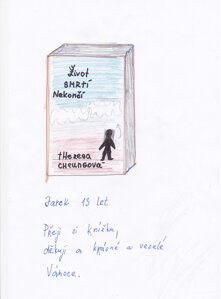 Život
SMRTÍ
Nekončí
tHeresa
CHeungová
Jarek 13 let
Přeji si knížku,
děkuji a krásné a veselé
Vánoce.